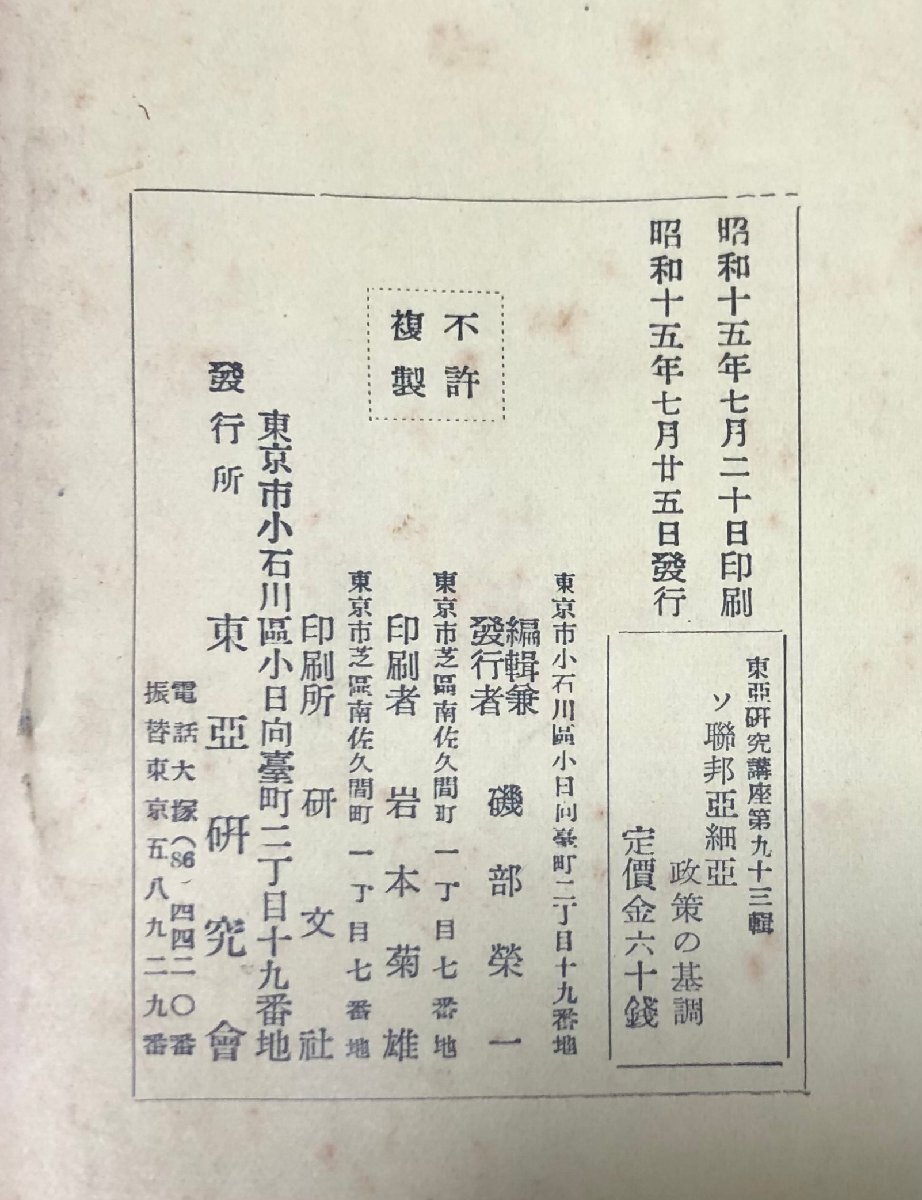 昭和十五年七月二十日印刷
昭和十五年七月廿五日發行
東亞硏究講座第九十三輯
ソ聯邦亞細亞
政策の基調
定價金六十錢
東京市小石川區小日向臺町二丁目十九番地
編輯兼
發行者
磯部榮一
不許
複製
東京市芝區南佐久間町一丁目七番地
印刷者 岩本菊雄
東京市芝區南佐久間町一丁目七番地
印刷所 硏文社
東京市小石川區小日向臺町二丁目十九番地
發行所 東亞硏究會
電話大塚(86)四四二〇番
振替東京五八九二九番